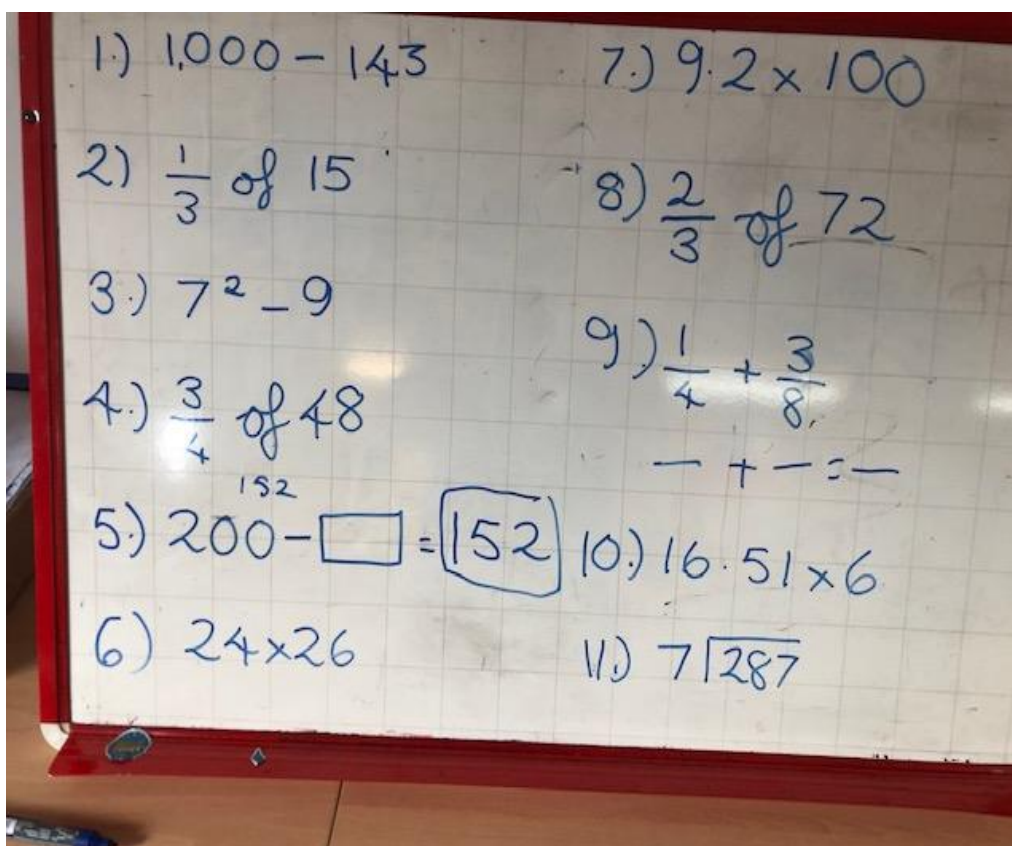 1.) 1,000 - 143
2) 1/3 of 15
3.) 7² - 9
4.) 3/4 of 48
152
5.) 200 - □ = 152
6) 24 x 26
7.) 9.2 x 100
8) 2/3 of 72
9.) 1/4 + 3/8
— + — = —
10.) 16.51 x 6
11.) 7 287